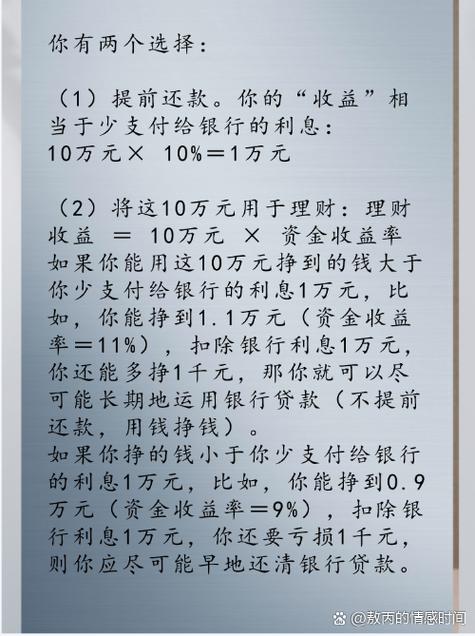 你有两个选择：
（1）提前还款。你的“收益”相
当于少支付给银行的利息：
10万元× 10%＝1万元
（2）将这10万元用于理财：理财
收益 ＝ 10万元 × 资金收益率
如果你能用这10万元挣到的钱大于
你少支付给银行的利息1万元，比
如，你能挣到1.1万元（资金收益
率＝11%），扣除银行利息1万元，
你还能多挣1千元，那你就可以尽
可能长期地运用银行贷款（不提前
还款，用钱挣钱）。
如果你挣的钱小于你少支付给银行
的利息1万元，比如，你能挣到0.9
万元（资金收益率＝9%），扣除银
行利息1万元，你还要亏损1千元，
则你应尽可能早地还清银行贷款。
敖丙的情感时间